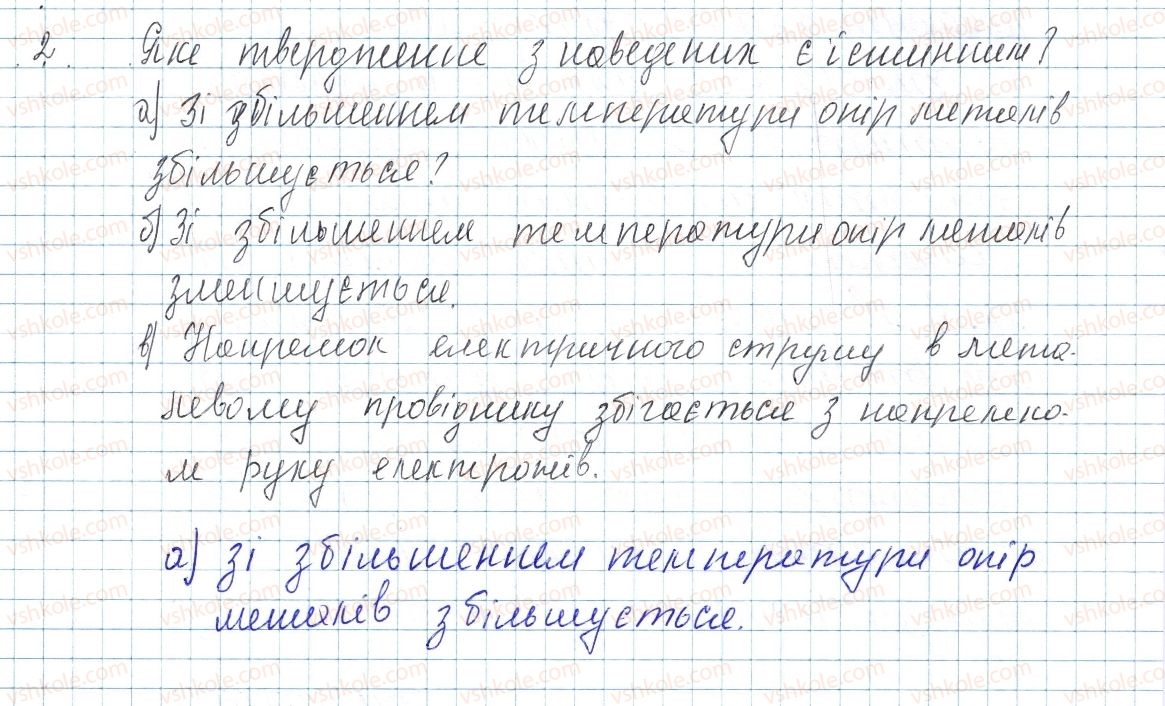 2. Яке твердження з наведених є істинним?
а) Зі збільшенням температури опір металів
збільшується?
б) Зі збільшенням температури опір металів
зменшується.
в) Напрямок електричного струму в мета-
левому провіднику збігається з напрямко-
м руху електронів.
а) зі збільшенням температури опір
металів збільшується.